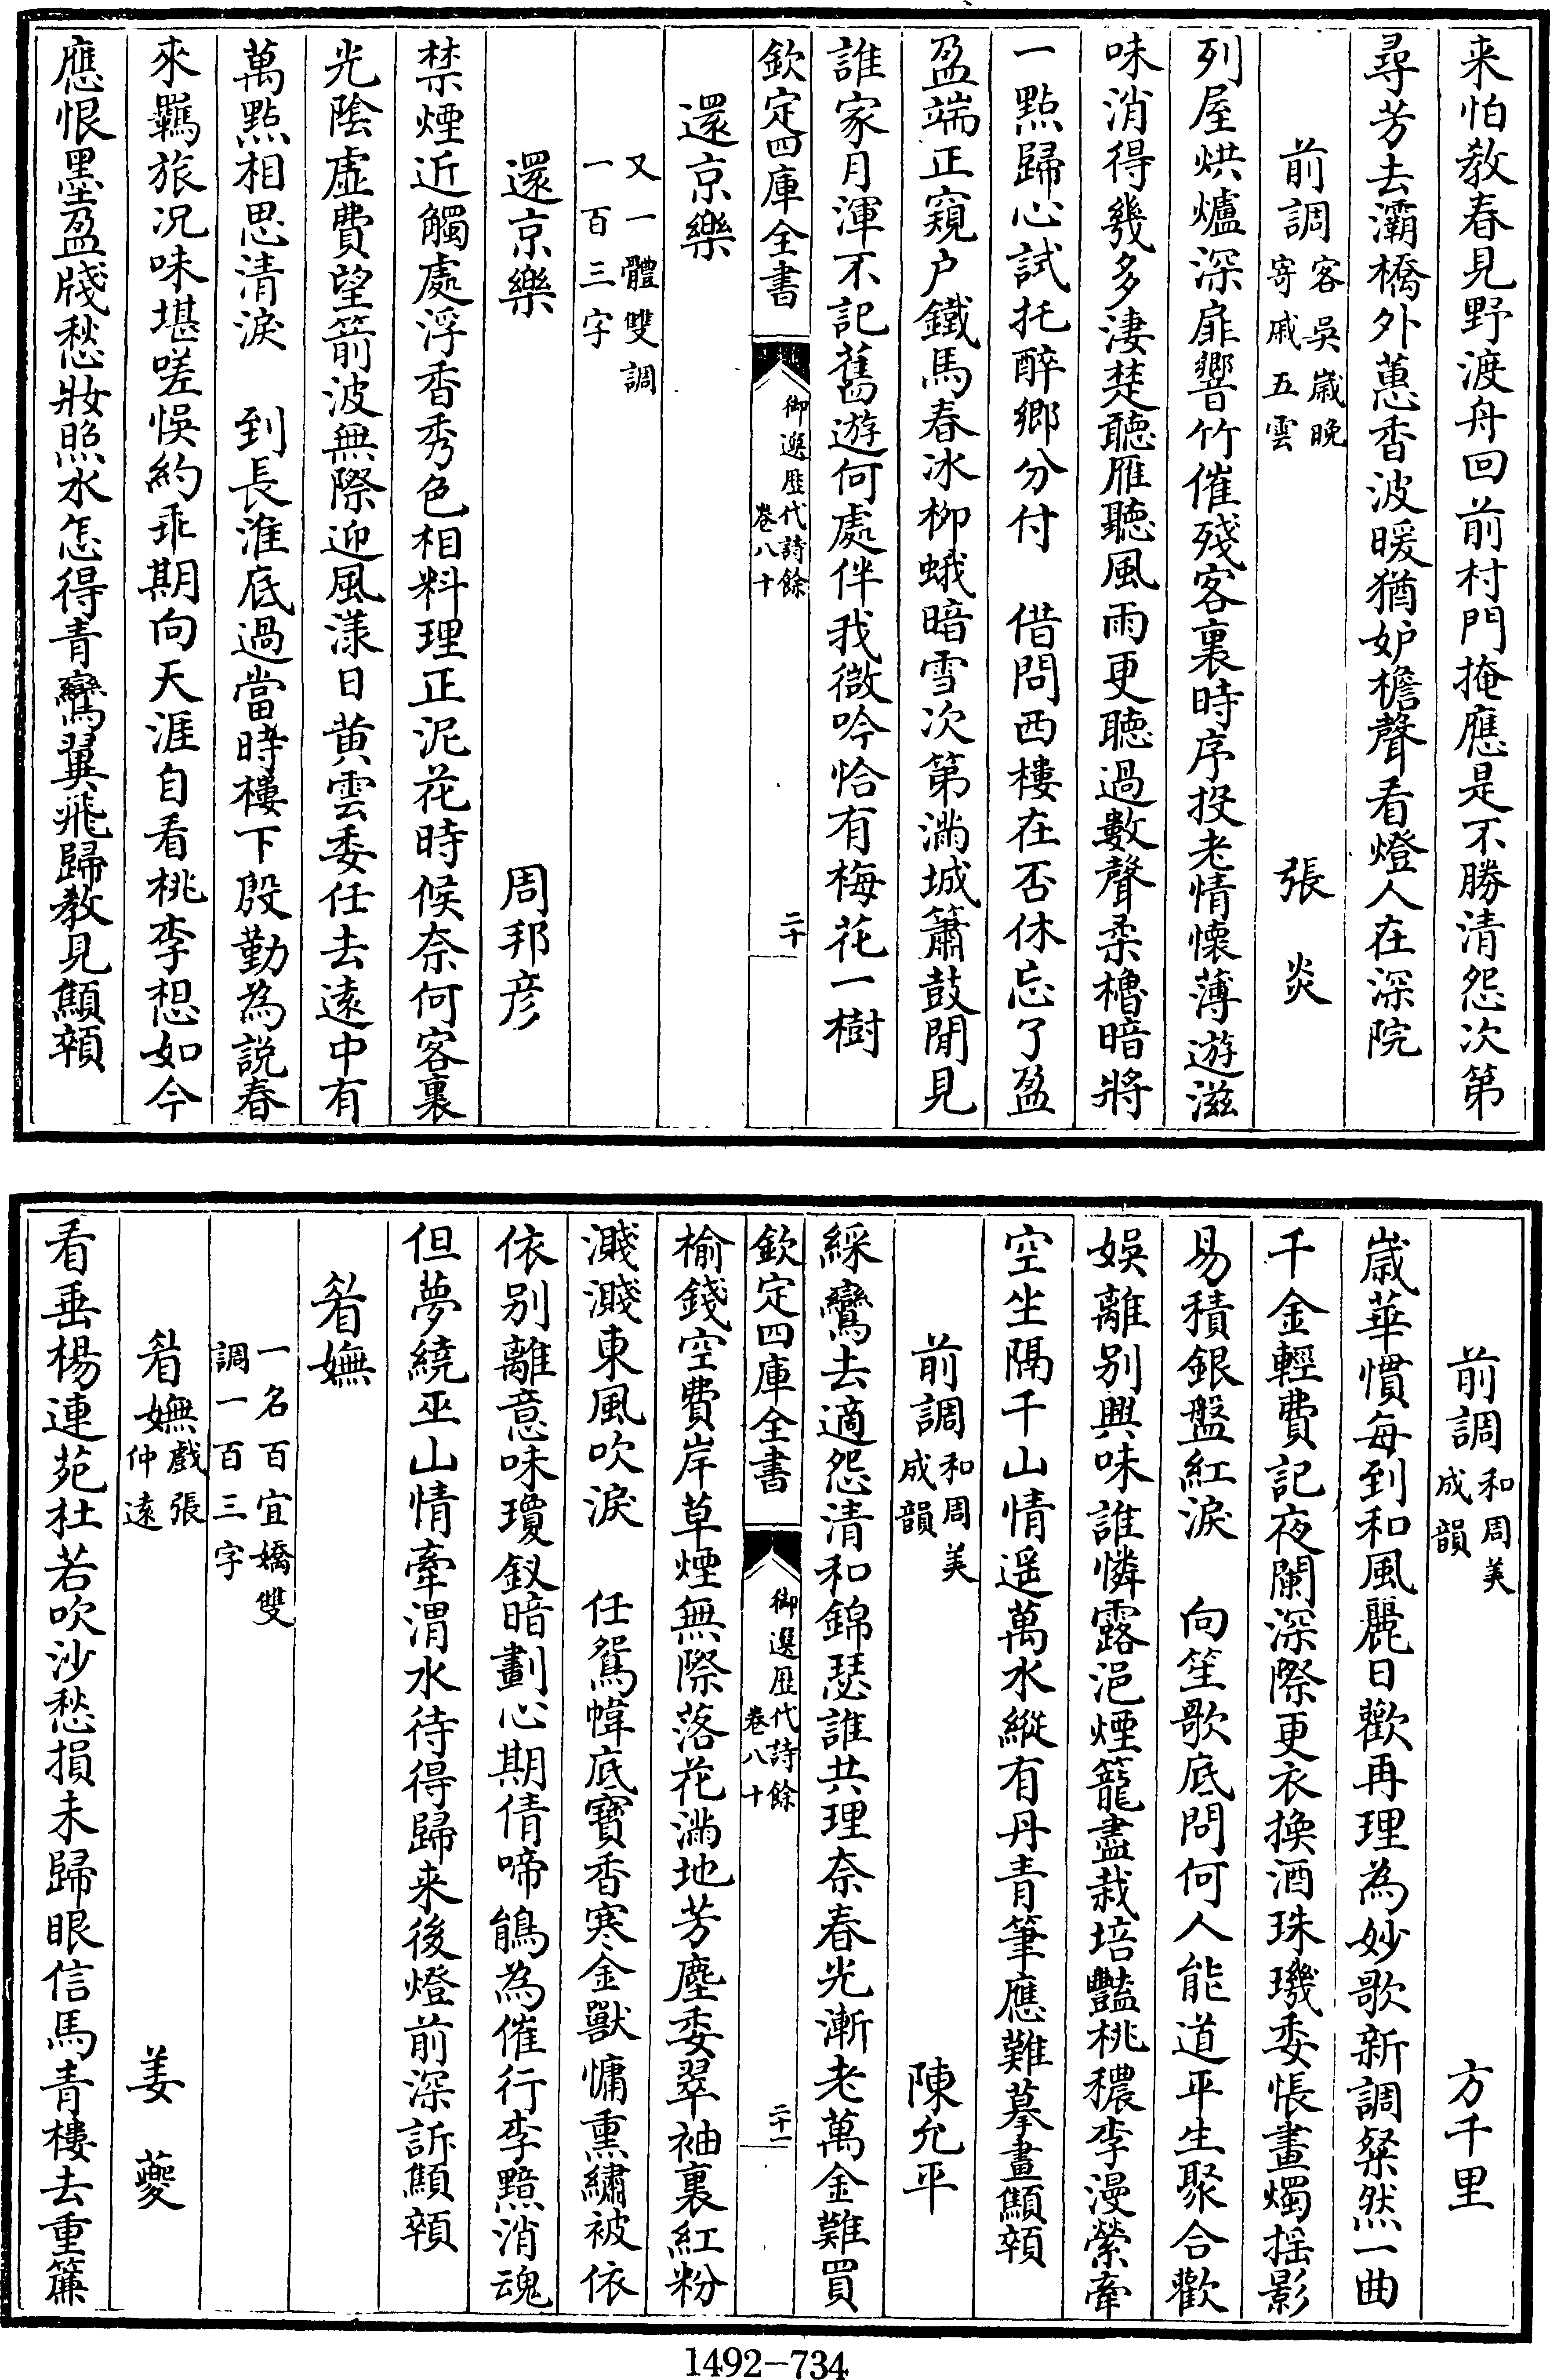 来怕教春見野渡舟回前村門掩應是不勝清怨次第
尋芳去灞橋外蕙香波暖猶妒檐聲看燈人在深院
前調客吳歲晚寄戚五雲　張炎
列屋烘爐深扉響竹催殘客裏時序投老情懷薄遊滋
味消得幾多淒楚聽雁聽風雨更聽過數聲柔櫓暗將
一點歸心試托醉鄉分付　借問西樓在否休忘了盈
盈端正窺户鐵馬春冰柳蛾暗雪次第滿城簫鼓閒見
誰家月渾不記舊遊何處伴我微吟恰有梅花一樹
欽定四庫全書　御選歷代詩餘卷八十　二十
還京樂
又一體雙調一百三字
還京樂　周邦彦
禁煙近觸處浮香秀色相料理正泥花時候奈何客裏
光陰虛費望箭波無際迎風漾日黄雲委任去遠中有
萬點相思清淚　到長淮底過當時樓下殷勤為説春
來羈旅况味堪嗟悞約乖期向天涯自看桃李想如今
應恨墨盈牋愁妝照水怎得青鸞翼飛歸教見顦顇
前調和周美成韻　方千里
歲華慣每到和風麗日歡再理為妙歌新調粲然一曲
千金輕費記夜闌深際更衣換酒珠璣委悵畫燭摇影
易積銀盤紅淚　向笙歌底問何人能道平生聚合歡
娛離别興味誰憐露浥煙籠盡栽培豔桃穠李漫縈牽
空坐隔千山情遥萬水縱有丹青筆應難摹畫顦顇
前調和周美成韻　陳允平
綵鸞去適怨清和錦瑟誰共理奈春光漸老萬金難買
欽定四庫全書　御選歷代詩餘卷八十　二十一
榆錢空費岸草煙無際落花滿地芳塵委翠袖裏紅粉
濺濺東風吹淚　任鴛幃底寶香寒金獸慵熏繡被依
依别離意味瓊釵暗劃心期倩啼鵑為催行李黯消魂
但夢繞巫山情牽渭水待得歸来後燈前深訴顦顇
眉嫵
一名百宜嬌雙調一百三字
眉嫵戲張仲遠　姜夔
看垂楊連苑杜若吹沙愁損未歸眼信馬青樓去重簾
1492—734